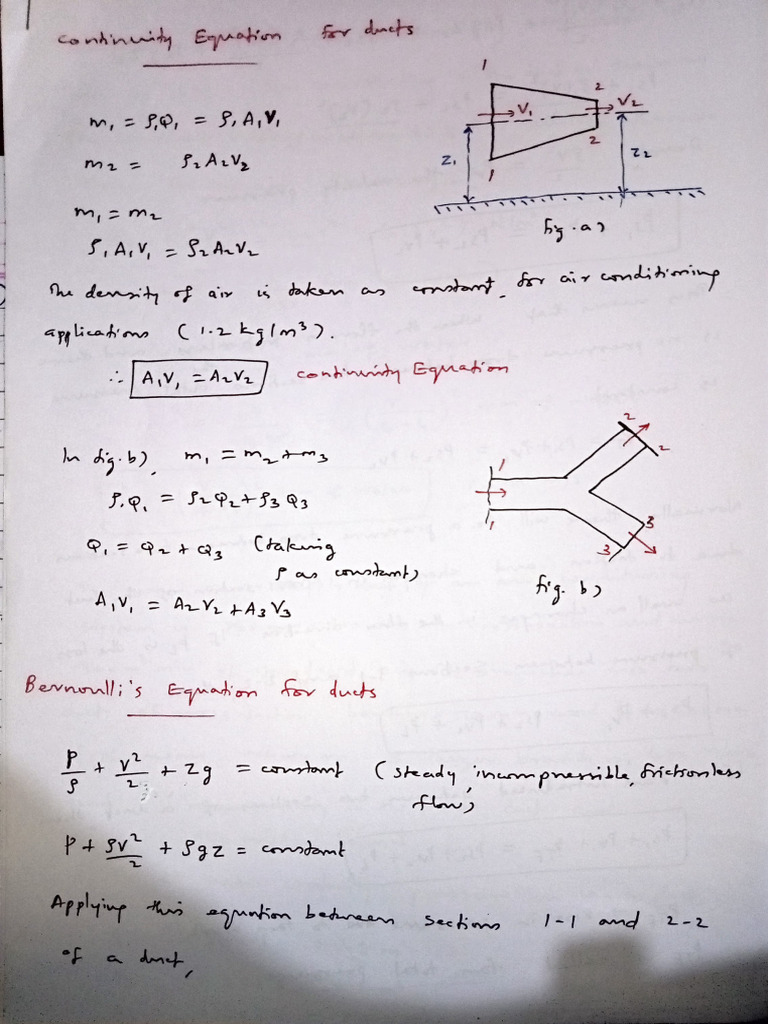 Continuity Equation for ducts
m₁ = ρ₁Q₁ = ρ₁A₁V₁
m₂ = ρ₂A₂V₂
m₁ = m₂
ρ₁A₁V₁ = ρ₂A₂V₂
1
2
V₁
V₂
2
1
Z₁
Z₂
fig.a)
The density of air is taken as constant for air conditioning
applications (1.2 kg/m³).
∴ A₁V₁ = A₂V₂ continuity Equation
In fig.b), m₁ = m₂+m₃
ρ₁Q₁ = ρ₂Q₂+ρ₃Q₃
Q₁ = Q₂ + Q₃ (taking
ρ as constant)
A₁V₁ = A₂V₂+A₃V₃
1
1
2
2
3
3
fig. b)
Bernoulli's Equation for ducts
P/ρ + V²/2 + Zg = constant (steady, incompressible, frictionless
flow)
P + ρV²/2 + ρgz = constant
Applying this equation between sections 1-1 and 2-2
of a duct,